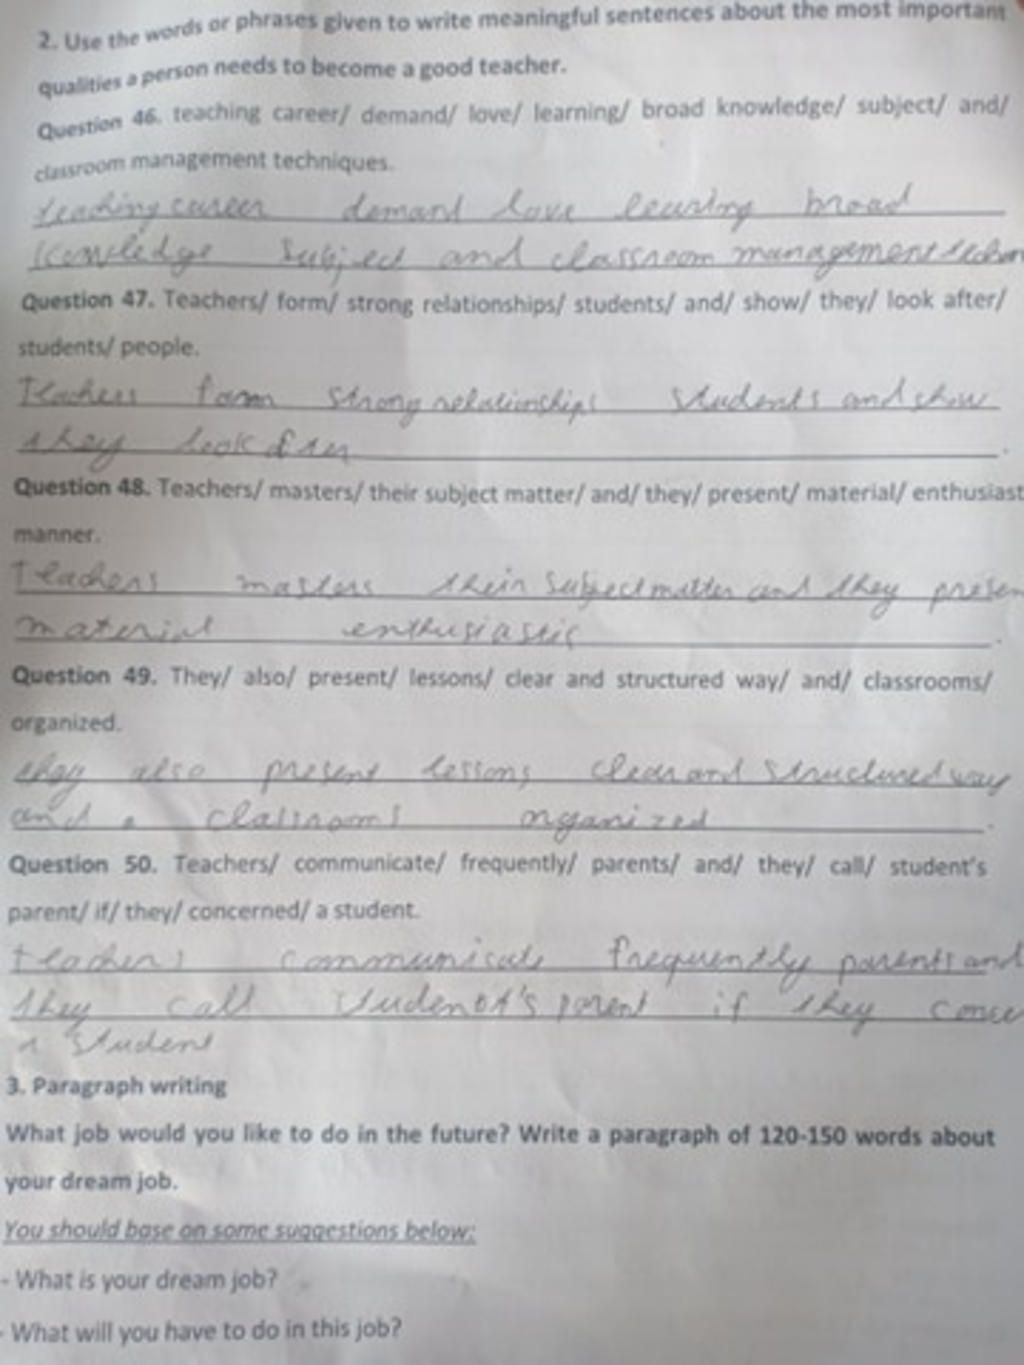 2. Use the words or phrases given to write meaningful sentences about the most important
qualities a person needs to become a good teacher.
Question 46. teaching career/ demand/ love/ learning/ broad knowledge/ subject/ and/
classroom management techniques.
teaching career demand love learing broad
knowledge subject and classroom management
Question 47. Teachers/ form/ strong relationships/ students/ and/ show/ they/ look after/
students/ people.
Teachers form strong relationships students and show
they look
Question 48. Teachers/ masters/ their subject matter/ and/ they/ present/ material/ enthusiast
manner.
Teachers masters their subject matter and they presen
material enthusiastic
Question 49. They/ also/ present/ lessons/ clear and structured way/ and/ classrooms/
organized.
they also present lessons clear and structured way
and classrooms organized
Question 50. Teachers/ communicate/ frequently/ parents/ and/ they/ call/ student's
parent/ if/ they/ concerned/ a student.
teachers communicate frequently parents and
they call parent if they conce
a student
3. Paragraph writing
What job would you like to do in the future? Write a paragraph of 120-150 words about
your dream job.
You should base on some suggestions below:
- What is your dream job?
- What will you have to do in this job?